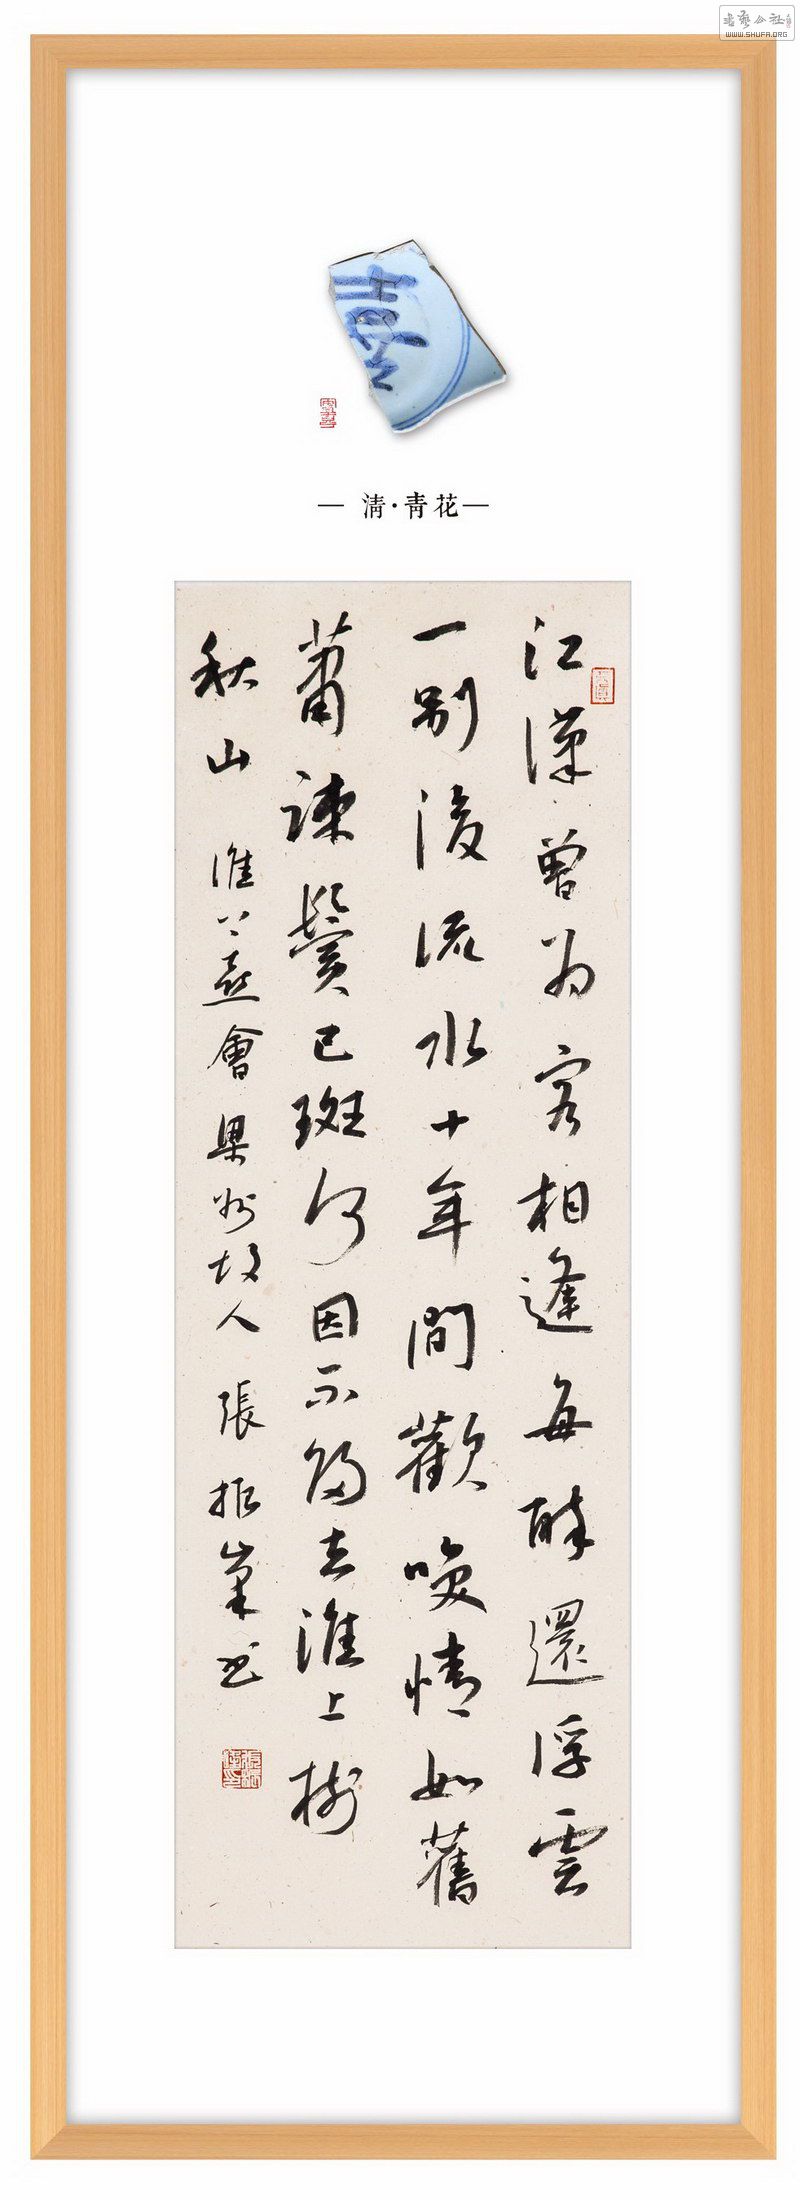 書藝公社
WWW.SHUFA.ORG
— 清·青花 —
江漢曾为客相逢每醉還浮雲
一别後流水十年間歡咲情如舊
蕭疎鬢已斑何因不歸去淮上對
秋山 淮上喜會梁州故人 張振书